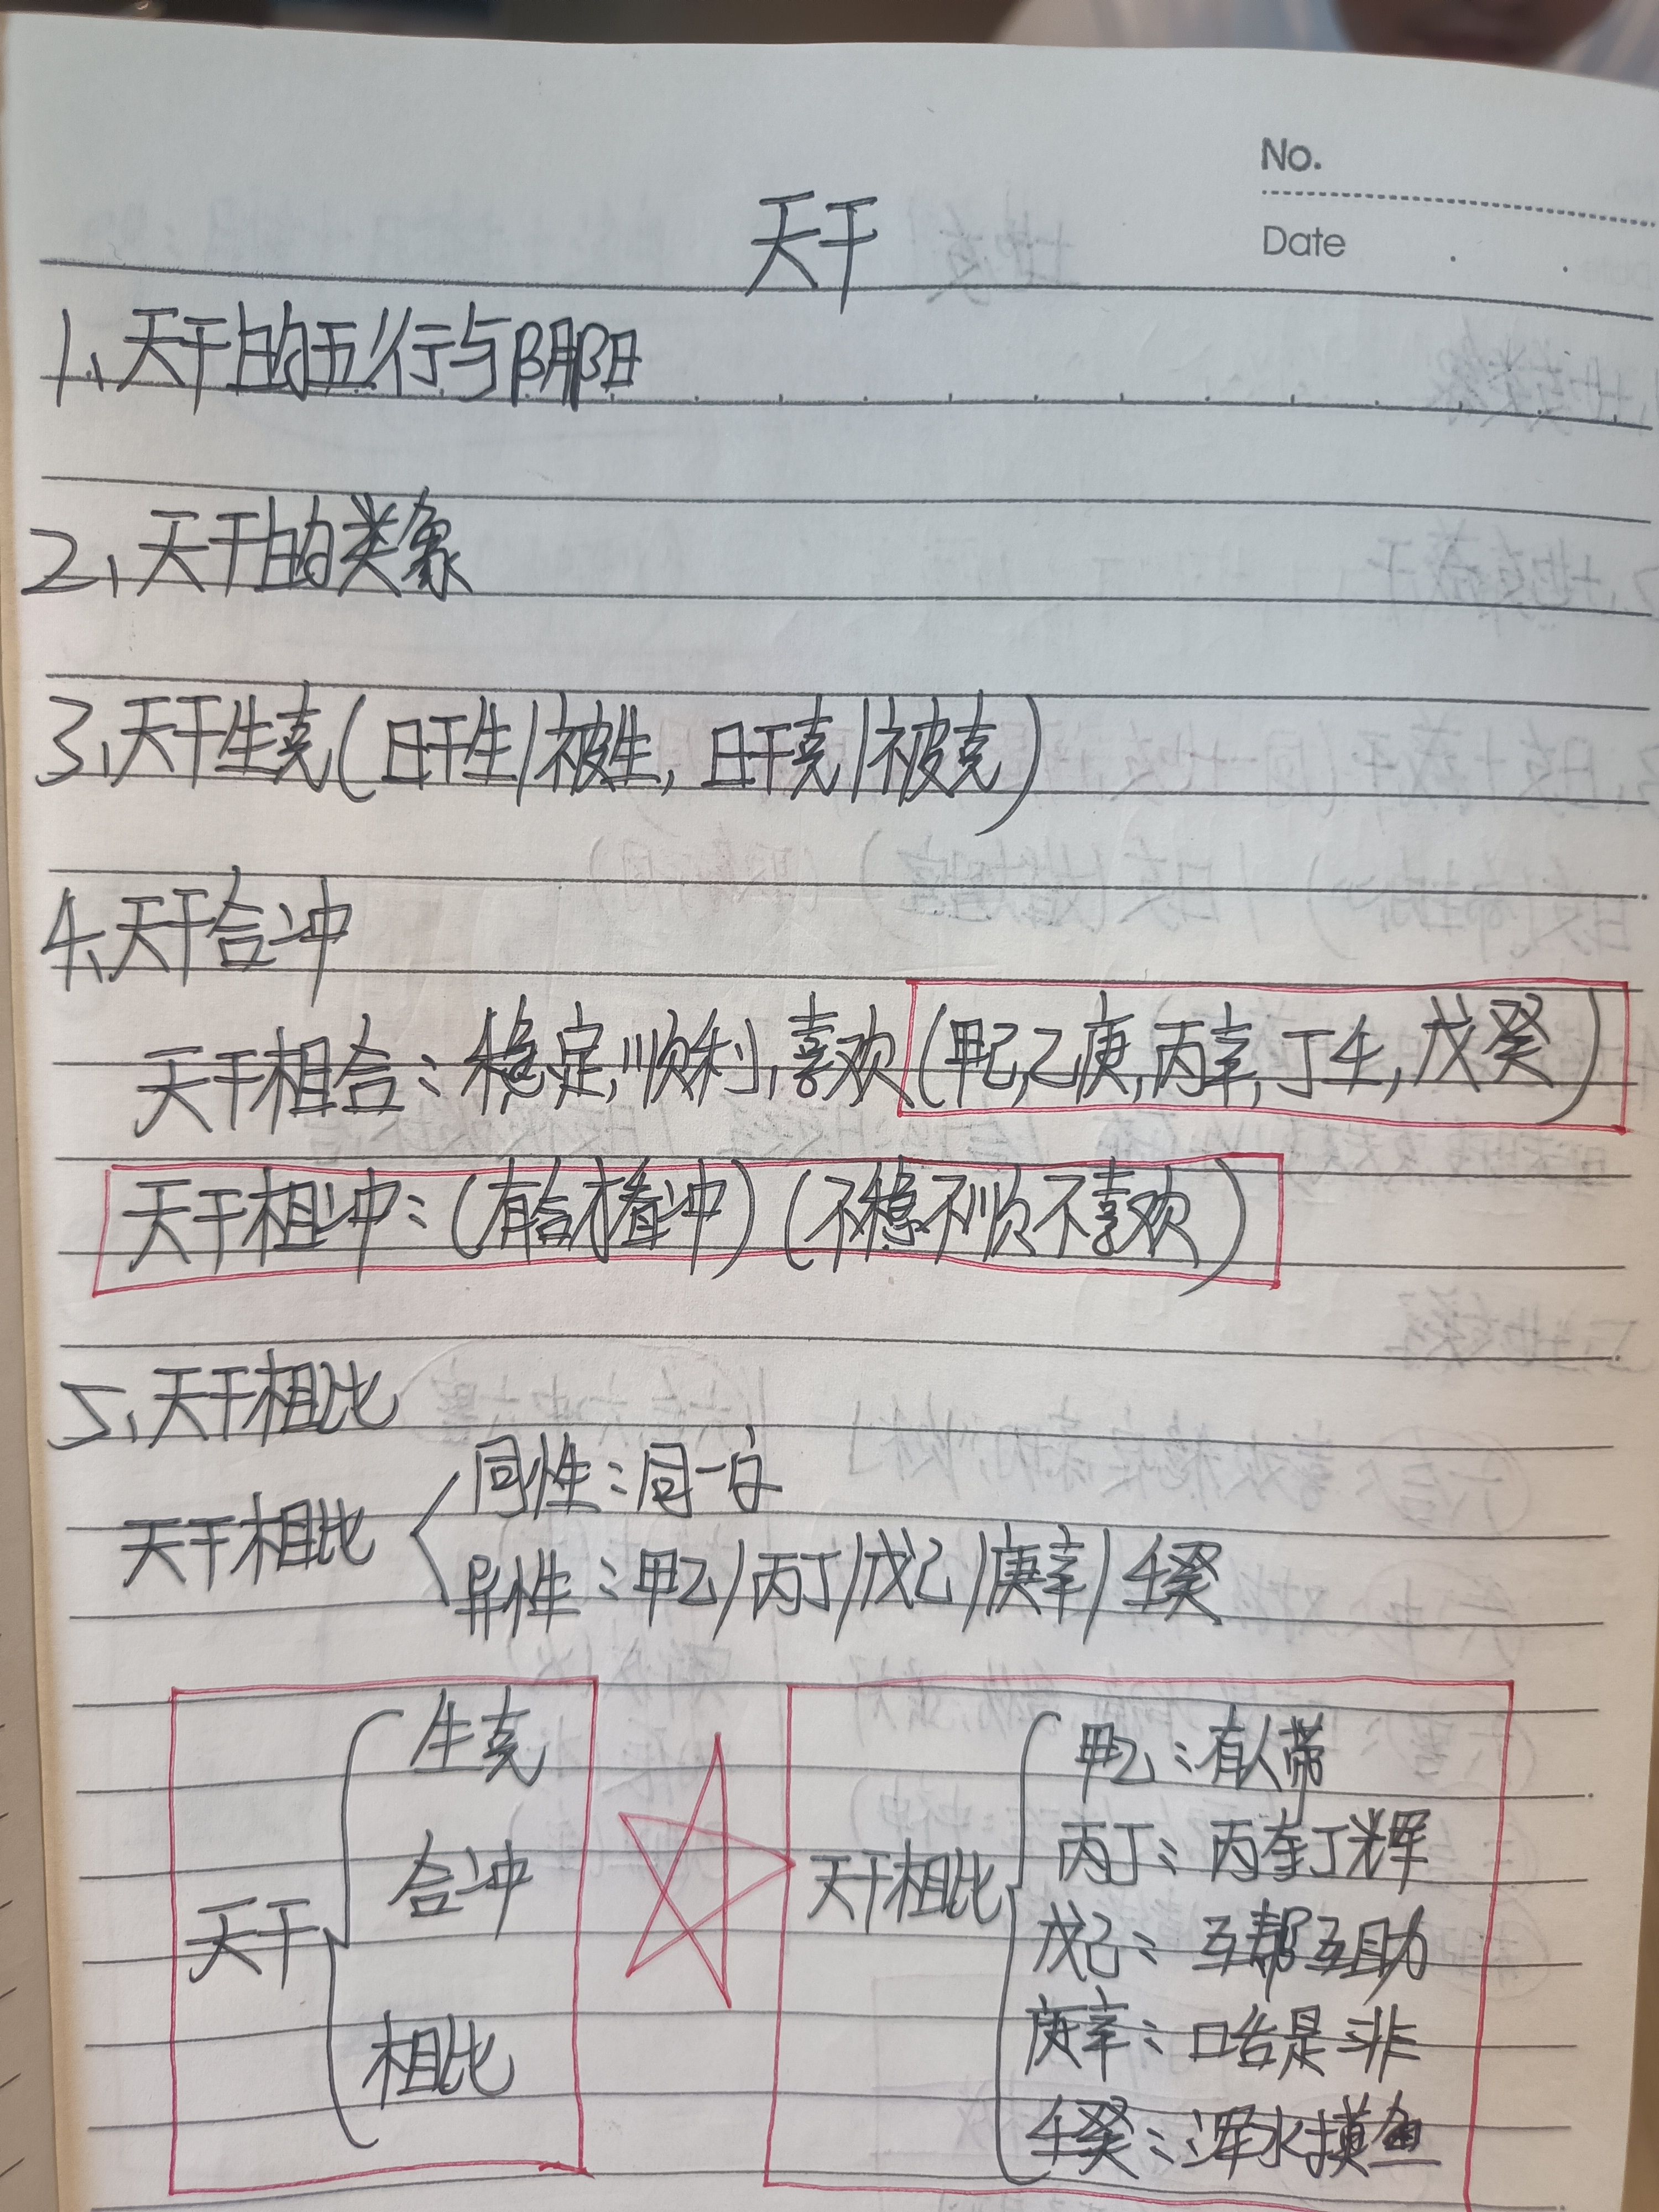 No.
Date
天干
1、天干的五行与阴阳
2、天干的类象
3、天干生克(日干生/被生,日干克/被克)
4、天干合冲
天干相合:稳定,顺利,喜欢(甲己,乙庚,丙辛,丁壬,戊癸)
天干相冲:(有合不看冲)(不稳不顺不喜欢)
5、天干相比
同性:同一字
天干相比
异性:甲乙/丙丁/戊己/庚辛/壬癸
生克
合冲
天干
相比
甲乙:有人带
丙丁:丙夺丁辉
天干相比
戊己:互帮互助
庚辛:口舌是非
壬癸:浑水摸鱼